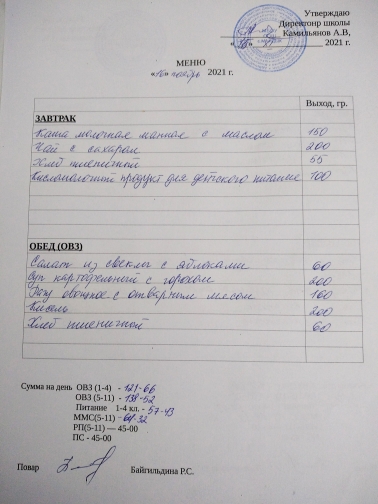 Утверждаю
Директонр школы
Камильянов А.В,
2021 г.
МЕНЮ
«16» ноябрь 2021 г.
Выход, гр.
ЗАВТРАК
Каша молочная манная с маслом 150
Чай с сахаром 200
Хлеб пшеничной 55
Кисломолочный продукт для детского питание 100
ОБЕД (ОВЗ)
Салат из свеклы с яблоками 60
Суп картофельный с горохом 200
Рагу овощное с отварным мясом 160
Кисель 200
Хлеб пшеничной 60
Сумма на день ОВЗ (1-4) - 121-66
ОВЗ (5-11) - 138-52
Питание 1-4 кл. - 57-43
ММС(5-11) - 64-32
РП(5-11) — 45-00
ПС - 45-00
Повар Байгильдина Р.С.